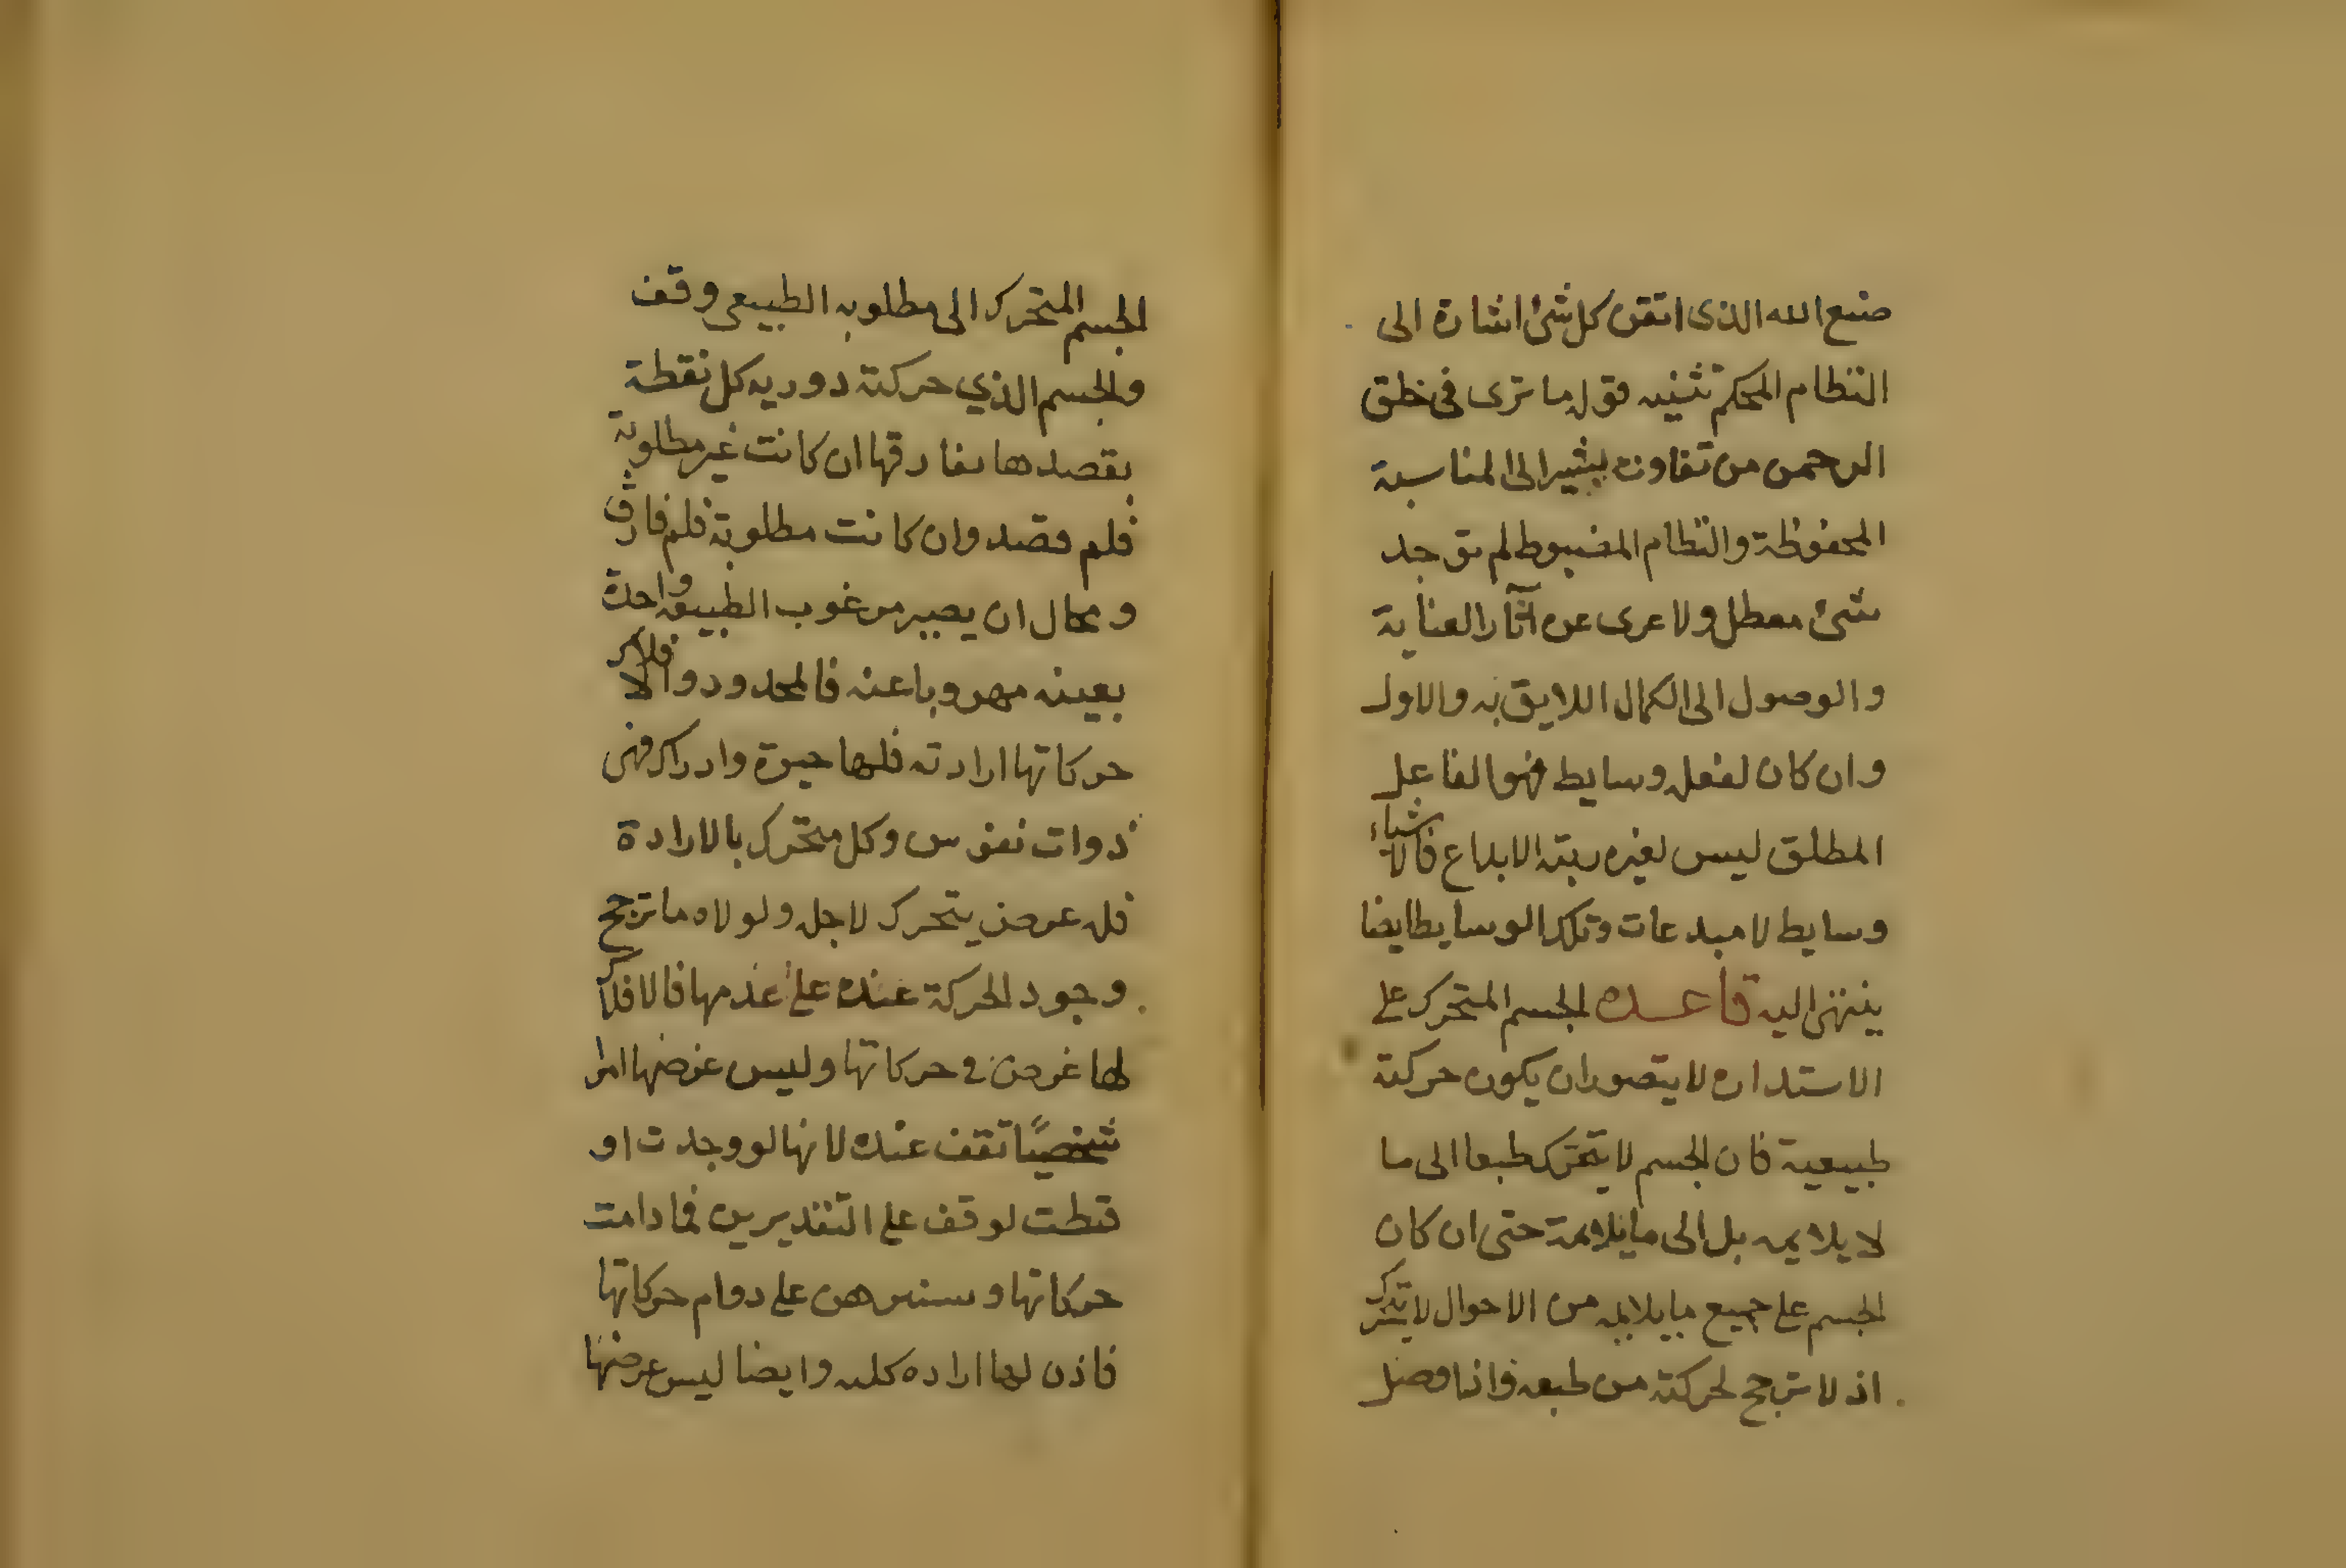 صنع الله الذى اتقن كل شئ اشارة الى
النظام المحكم تثنيه قوله ما ترى فى خلق
الرحمن من تفاوت يشير الى المناسبة
المحفوظة والنظام المضبوط لم توجد
شئ معطل ولا عرى عن آثار العناية
والوصول الى الكمال اللايق به والاول
وان كان لفعله وسايط فهو الفاعل
المطلق ليس لغيره رتبة الابداع فالاشياء
وسايط لا مبدعات وتلك الوسايط ايضا
ينتهى اليه قاعده الجسم المتحرك على
الاستداره لا يتصور ان يكون حركته
طبيعية فان الجسم لا يتحرك طبعا الى ما
لا يلايمه بل الى ما يلايمه حتى ان كان
الجسم على جميع ما يلايمه من الاحوال لا يتحرك
اذ لا ترجح لحركته من طبعه واذا وصل
الجسم المتحرك الى مطلوبه الطبيعى وقف
والجسم الذي حركته دوريه كل نقطة
يقصدها يفارقها ان كانت غير مطلوبة
فلم قصد وان كانت مطلوبة فلم فارق
ومحال ان يصير مرغوب الطبيعه واحدة
بعينه مهروبا عنه فالمحدود والافلاك
حركاتها ارادته فلها حيوة وادراك فهى
ذوات نفوس وكل متحرك بالارادة
فله عرض يتحرك لاجله ولولاه ما ترجح
وجود الحركة عنده على عدمها فالافلاك
لها غرض في حركاتها وليس غرضها امرا
شخصيًا تقف عنده لانها لو وجدت او
قنطت لوقف على التقديرين فما دامت
حركاتها وسنبرهن على دوام حركاتها
فاذن لها اراده كليه وايضا ليس عرضها